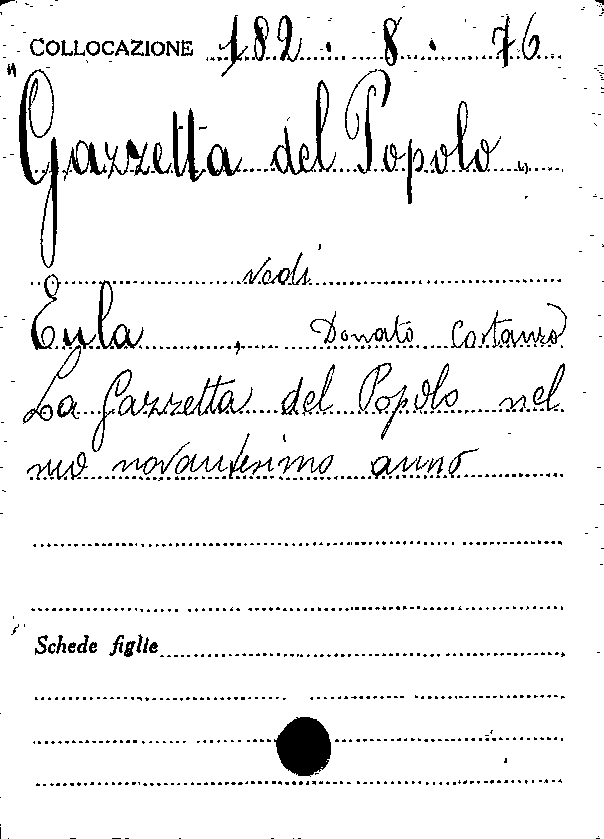 COLLOCAZIONE 182 . 8 . 76
"Gazzetta del Popolo"
vedi
Eula, Donato Costanzo
La Gazzetta del Popolo nel
suo novantesimo anno
Schede figlie